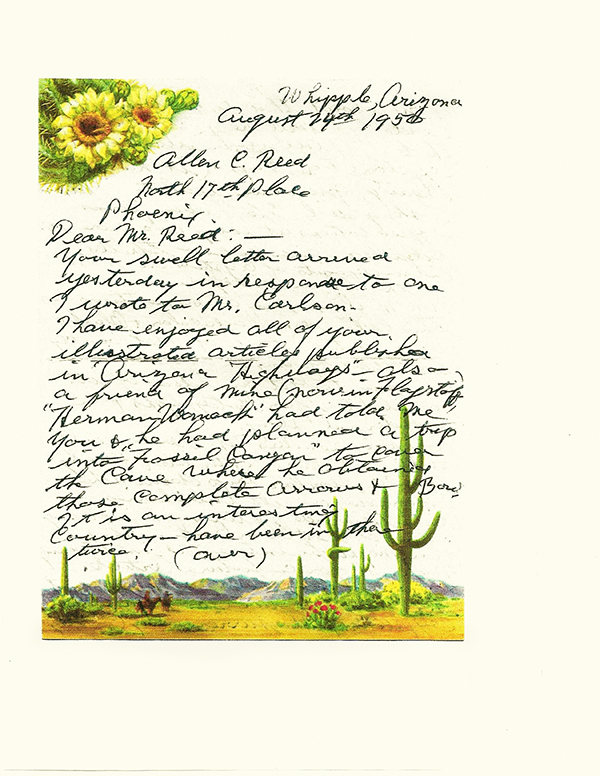 Whipple, Arizona
August 24th 1950
Allen C. Reed
North 17th Place
Phoenix
Dear Mr. Reed: —
Your swell letter arrived
yesterday in response to one
I wrote to Mr. Carlson.
I have enjoyed all of your
illustrated articles published
in "Arizona Highways" - also -
a friend of mine (now in Flagstaff)
"Herman Womack" had told me
you & he had planned a trip
into "Fossil Canyon" to
the Cave where he obtained
those complete Arrows & Bow.
It is an interesting
Country — have been in there
twice. (over)